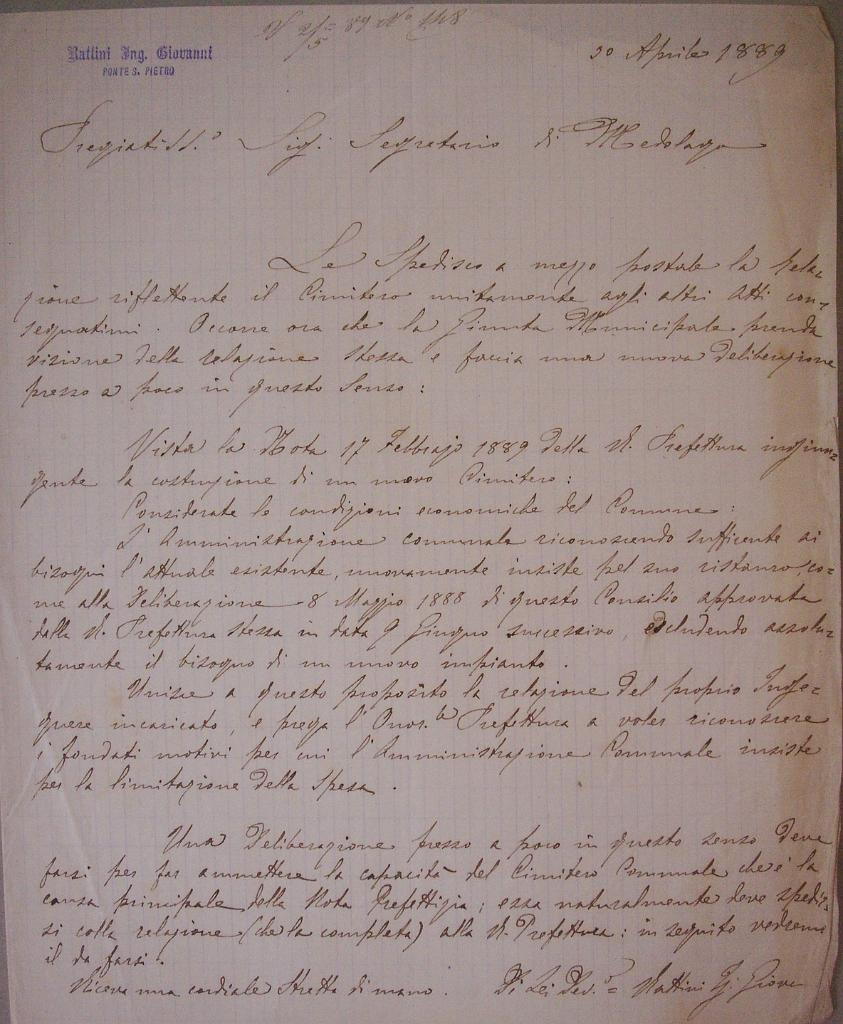 N 2/5 = 89 No 148
Rattini Ing. Giovanni
PONTE S. PIETRO
30 Aprile 1889
Pregiatiss.o Sig. Segretario di Medolago
Le Spedisco a mezzo postale la Rela-
zione riflettente il Cimitero unitamente agli altri Atti con-
segnatimi. Occorre ora che la Giunta Municipale prenda
visione della relazione stessa e faccia una nuova deliberazione
presso a poco in questo senso:
Vista la Nota 17 Febbrajo 1889 della R. Prefettura ingiun-
gente la costruzione di un nuovo Cimitero:
Considerate le condizioni economiche del Comune:
L'Amministrazione comunale riconoscendo sufficente ai
bisogni l'attuale esistente, nuovamente insiste pel suo ristauro, co-
me alla Deliberazione 8 Maggio 1888 di questo Consilio approvata
dalla R. Prefettura stessa in data 9 Giugno successivo, escludendo assolu-
tamente il bisogno di un nuovo impianto.
Unisce a questo proposito la relazione del proprio Inge-
gnere incaricato, e prega l'Onor.le Prefettura a voler riconoscere
i fondati motivi per cui l'Amministrazione Comunale insiste
per la limitazione della spesa.
Una Deliberazione presso a poco in questo senso deve
farsi per far ammettere la capacità del Cimitero Comunale che è la
causa principale della Nota Prefettizia; essa naturalmente deve spedir-
si colla relazione (che la completa) alla R. Prefettura: in seguito vedremo
il da farsi.
Riceva una cordiale stretta di mano. Di Lei Dev.o = Rattini G. Giov